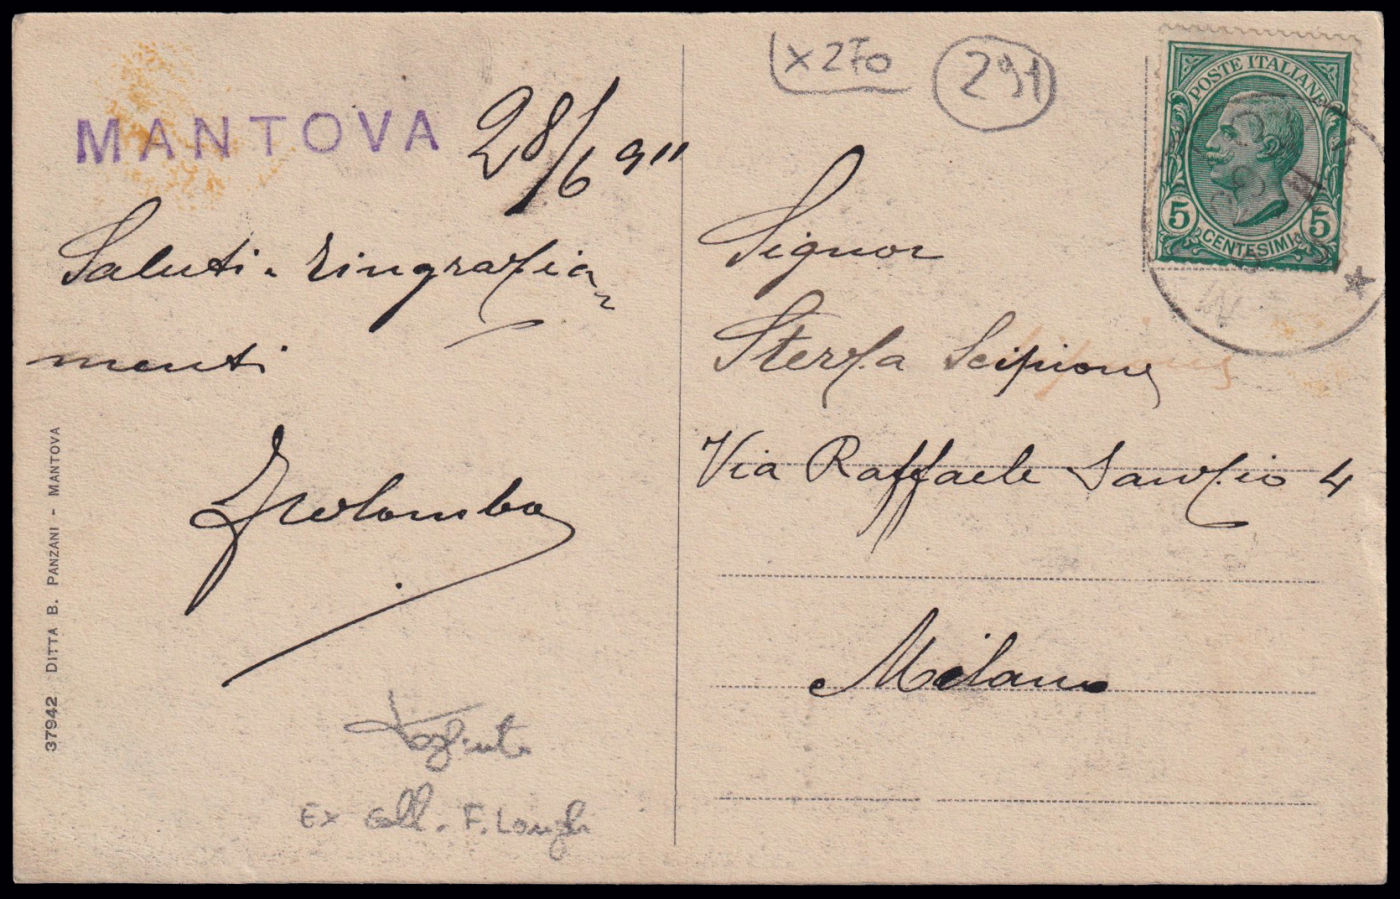 MANTOVA 28/6 911
Saluti - ringrazia-
menti
37942 DITTA B. PANZANI - MANTOVA
Ex Coll. F. Longhi
X 270
291
POSTE ITALIANE
5 CENTESIMI 5
Signor
Sterza Scipione
Via Raffaele Sanzio 4
Milano